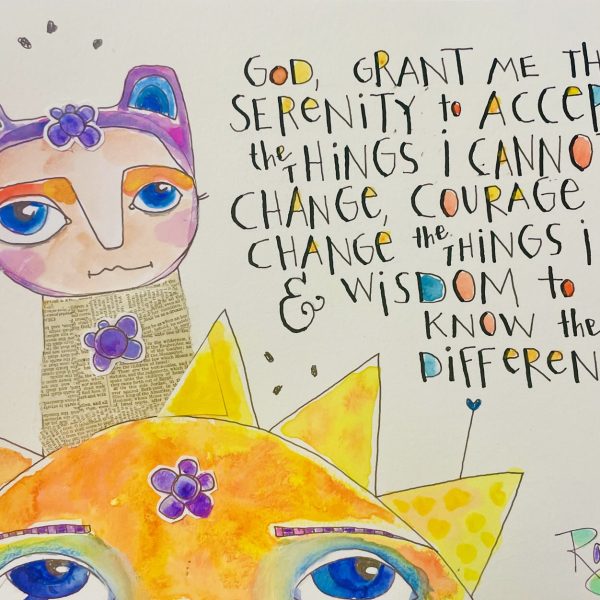 GOD, GRANT ME TH
SERENITY to ACCEP
the THINGS I CANNO
CHANGE, COURAGE
CHANGE the THINGS I
& WISDOM to
KNOW the
DIFFEREN